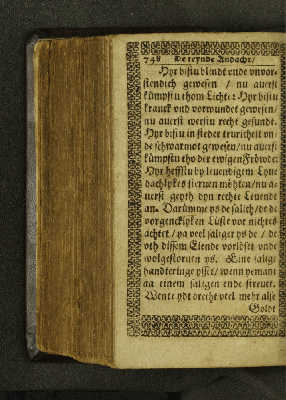 748 De teynde Andacht/
Hyr bistu blindt vnde vnvor-
stendich gewesen / nu averst
kümpstu thom Lichte: Hyr bistu
kranck vnd vorwundet gewesen/
nu averst werstu recht gesundt.
Hyr bistu in steder truricheit vn-
de schwarmot gewesen/nu averst
kümpstu tho der ewigen Fröwde:
Hyr heffstu by levendigem Lyve
dachlykes sterven möthen/nu a-
verst geyth dyn rechte Levendt
an. Darümme ys de salich/de de
vorgencklyken Lüste vor nichtes
achtet/ya veel saliger ys de / de
vth dissem Elende vorlöset vnde
wolgestorven ys. Eine salige
handteringe ysset/wenn yemant
na einem saligen ende strevet.
Wente ydt orecht veel mehr alse
Goldt